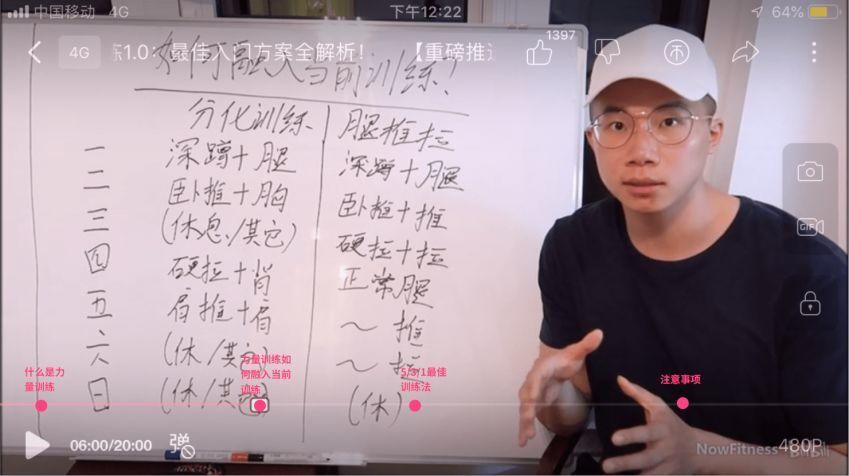 中国移动 4G 下午12:22 64%
4G 练1.0：最佳入门方案全解析！ 【重磅推 1397
如何融入当前训练？
分化训练 腿推拉
一 深蹲+腿 深蹲+腿
二 卧推+胸 卧推+推
三 (休息/其它) 硬拉+拉
四 硬拉+背 正常腿
五 肩推+肩 ～ 推
六 (休/其它) ～ 拉
日 (休/其它) (休)
GIF
什么是力
量训练
力量训练如
何融入当前
训练
5/3/1最佳
训练法
注意事项
06:00/20:00 弹 480P
NowFitness bilibili